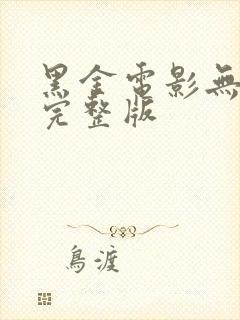 黑金電影無
完整版
鳥渡